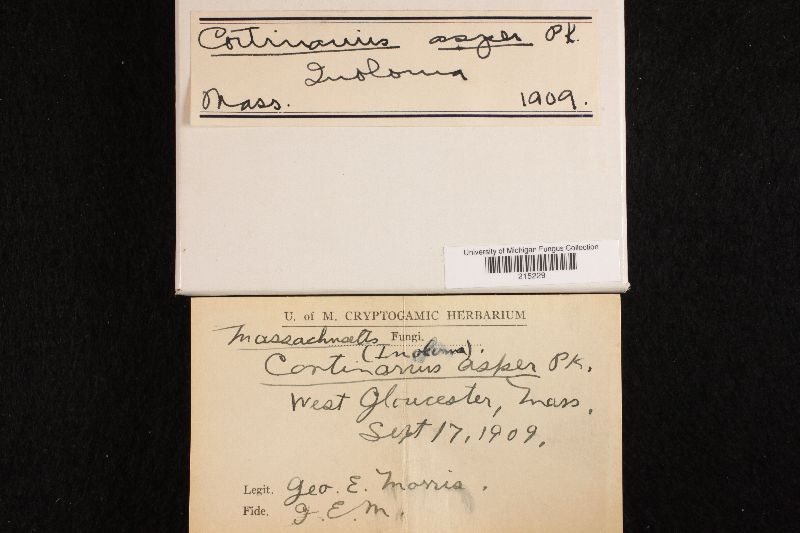 Cortinarius asper Pk.
Inoloma
Mass. 1909.
University of Michigan Fungus Collection
215229
U. of M. CRYPTOGAMIC HERBARIUM
Massachusetts Fungi.
(Inoloma).
Cortinarius asper Pk.
West Gloucester, Mass.
Sept 17, 1909.
Legit. Geo. E. Morris.
Fide. G. E. M.